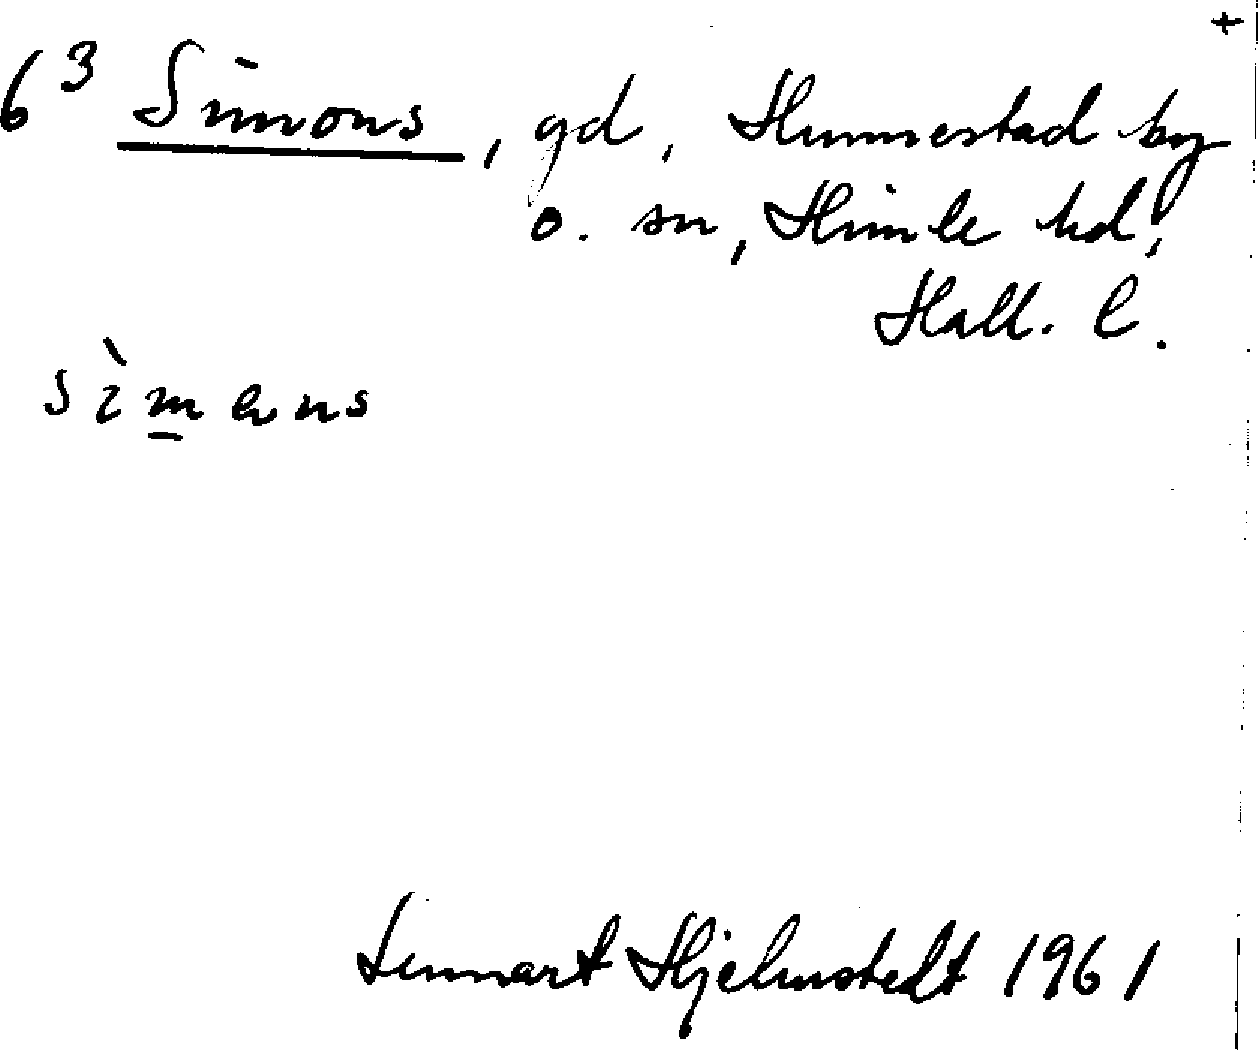 +
6³ Simons, gd, Hunnestad by
o. sn, Himle hd,
Hall. l.
sìm̲ans
Lennart Hjelmstedt 1961